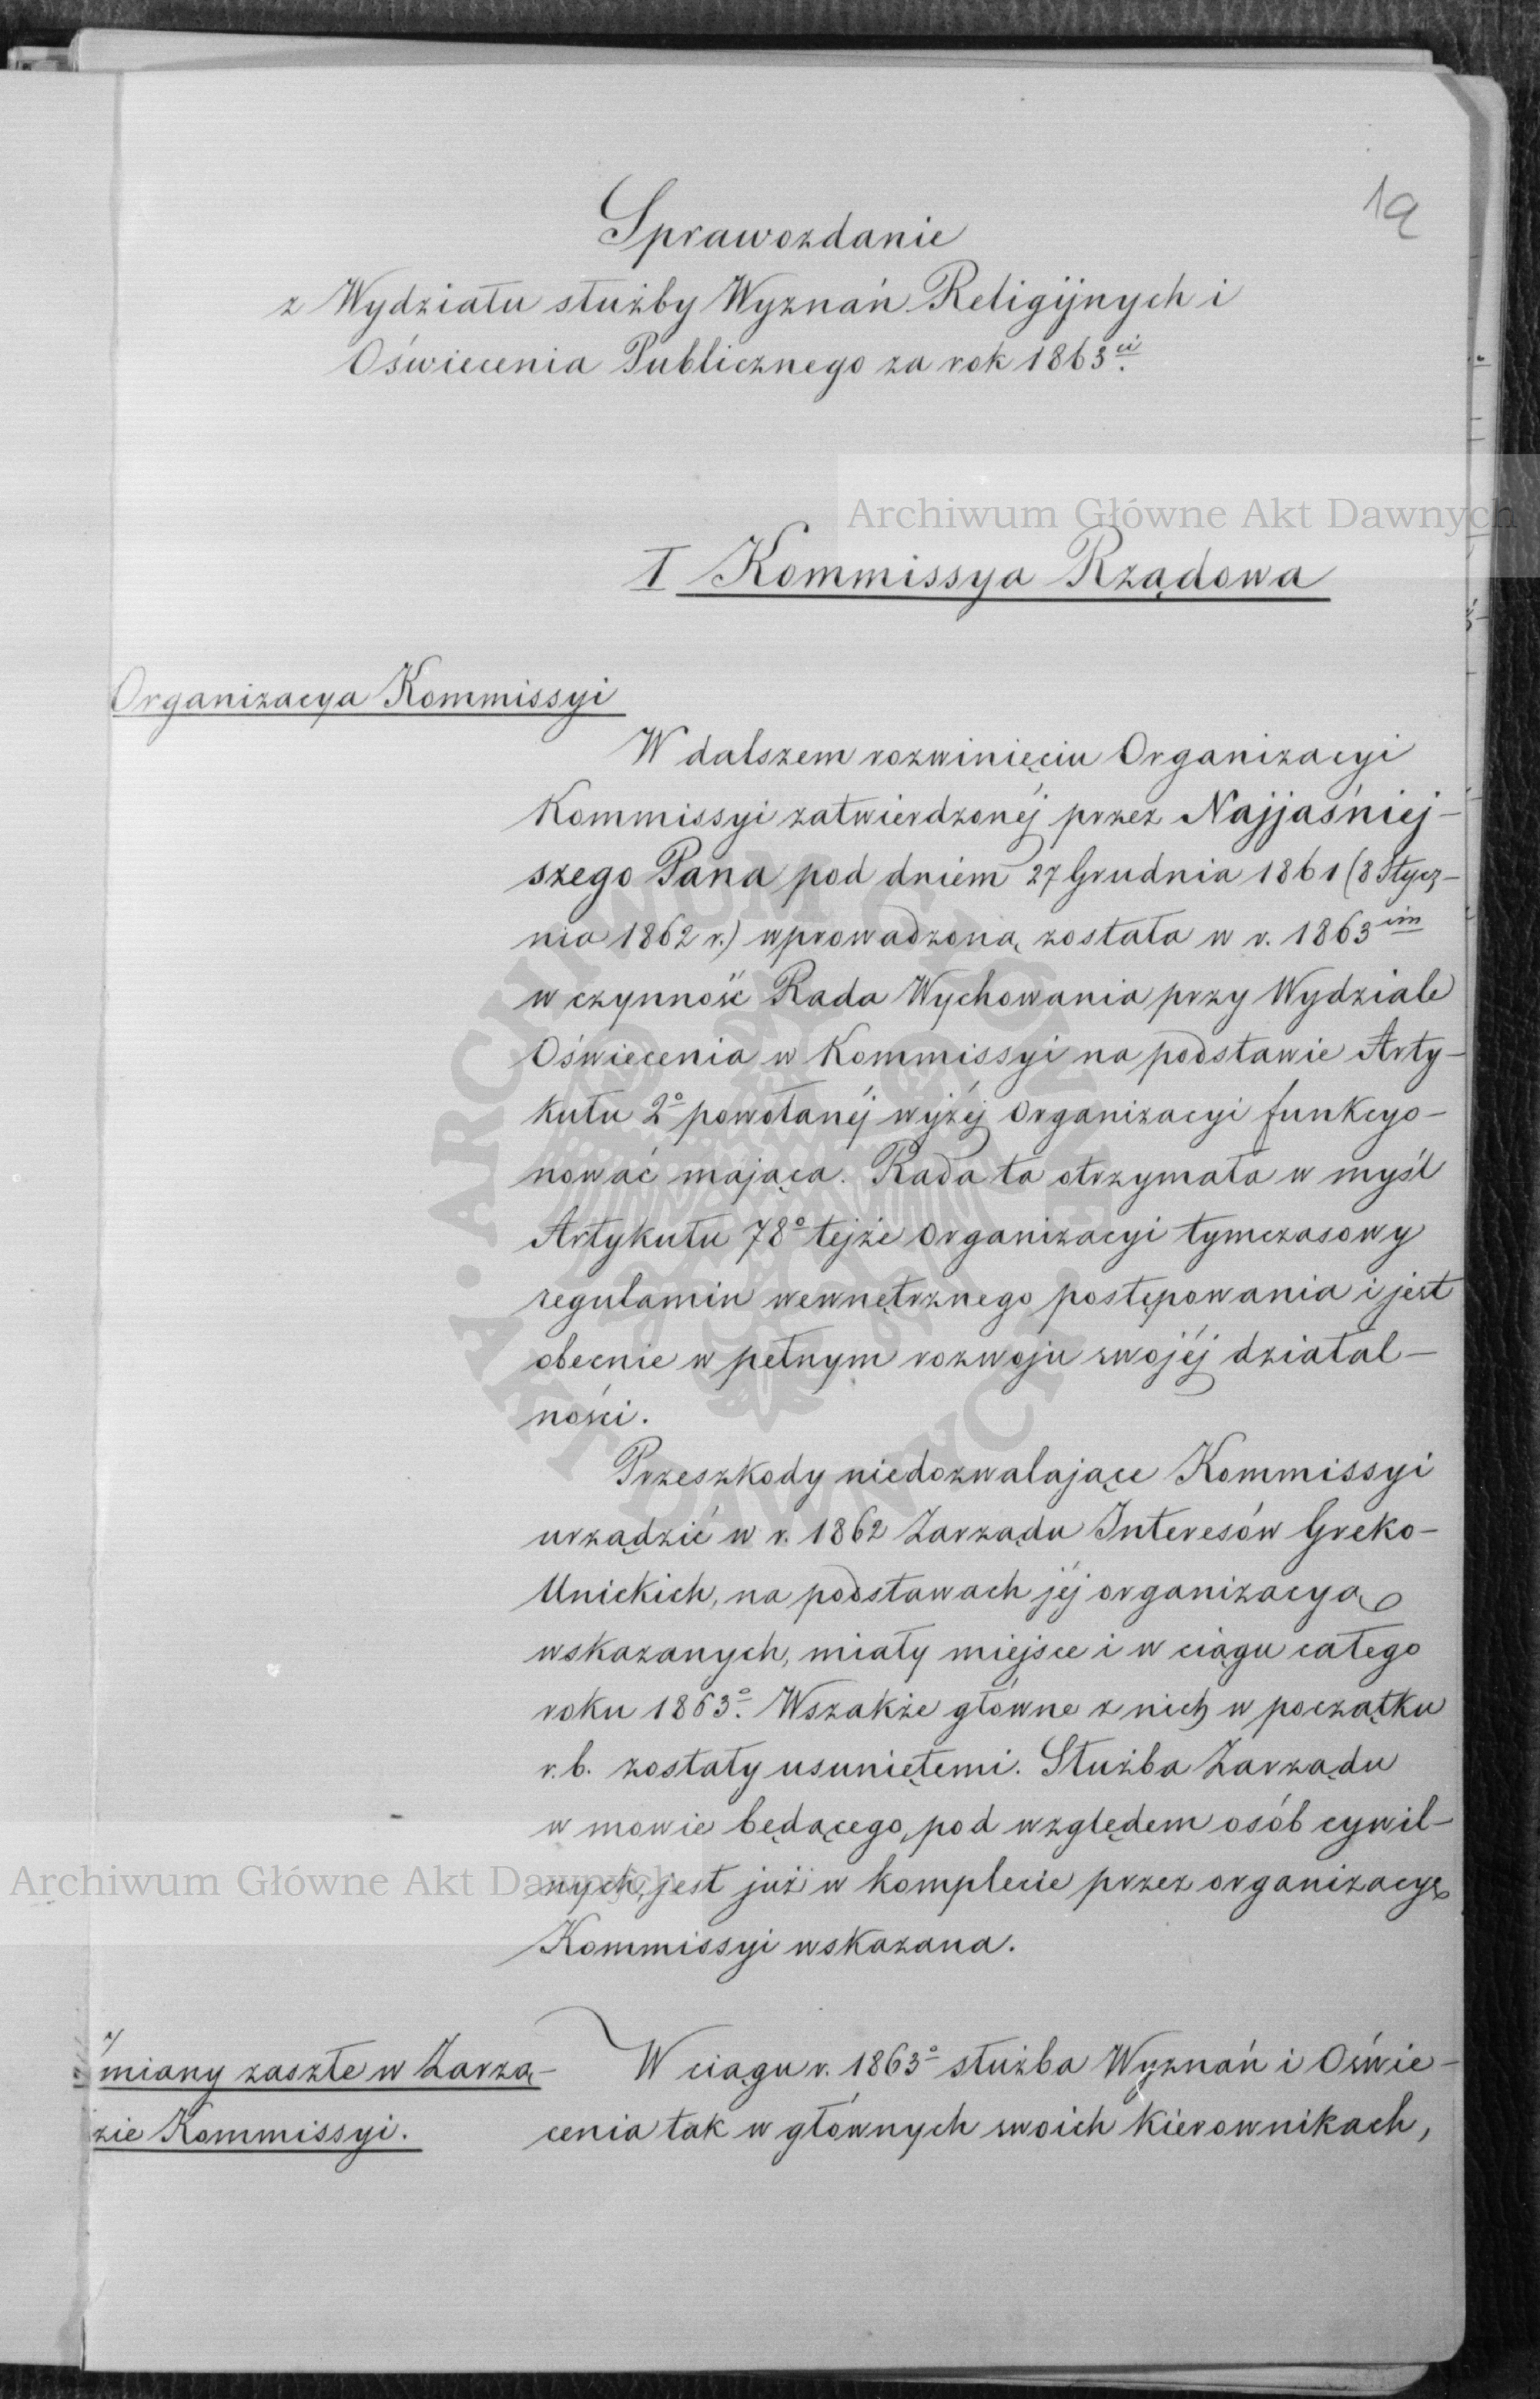 19
Sprawozdanie
z Wydziału służby Wyznań Religijnych i
Oświecenia Publicznego za rok 1863ci.
Archiwum Główne Akt Dawnych
I Kommissya Rządowa
Organizacya Kommissyi
W dalszem rozwinięciu Organizacyi
Kommissyi zatwierdzonéj przez Najjaśniej-
szego Pana pod dniem 27 Grudnia 1861 (8 Stycz-
nia 1862 r.) wprowadzoną została w r. 1863im
w czynność Rada Wychowania przy Wydziale
Oświecenia w Kommissyi na podstawie Arty-
kułu 2o powołanéj wyżéj Organizacyi funkcyo-
nować mająca. Rada ta otrzymała w myśl
Artykułu 78o tejże Organizacyi tymczasowy
regulamin wewnętrznego postępowania i jest
obecnie w pełnym rozwoju swojéj działal-
ności.
Przeszkody niedozwalające Kommissyi
urządzić w r. 1862 Zarządu Interesów Greko-
Unickich, na podstawach jéj organizacyą
wskazanych, miały miejsce i w ciągu całego
roku 1863o. Wszakże główne z nich w początku
r.b. zostały usuniętemi. Służba Zarządu
w mowie będącego, pod względem osób cywil-
nych, jest już w komplecie przez organizacyę
Archiwum Główne Akt Dawnych
Kommissyi wskazana.
miany zaszłe w Zarzą-
dzie Kommissyi.
W ciągu r. 1863o służba Wyznań i Oświe-
cenia tak w głównych swoich kierownikach,
ARCHIWUM GŁÓWNE AKT DAWNYCH